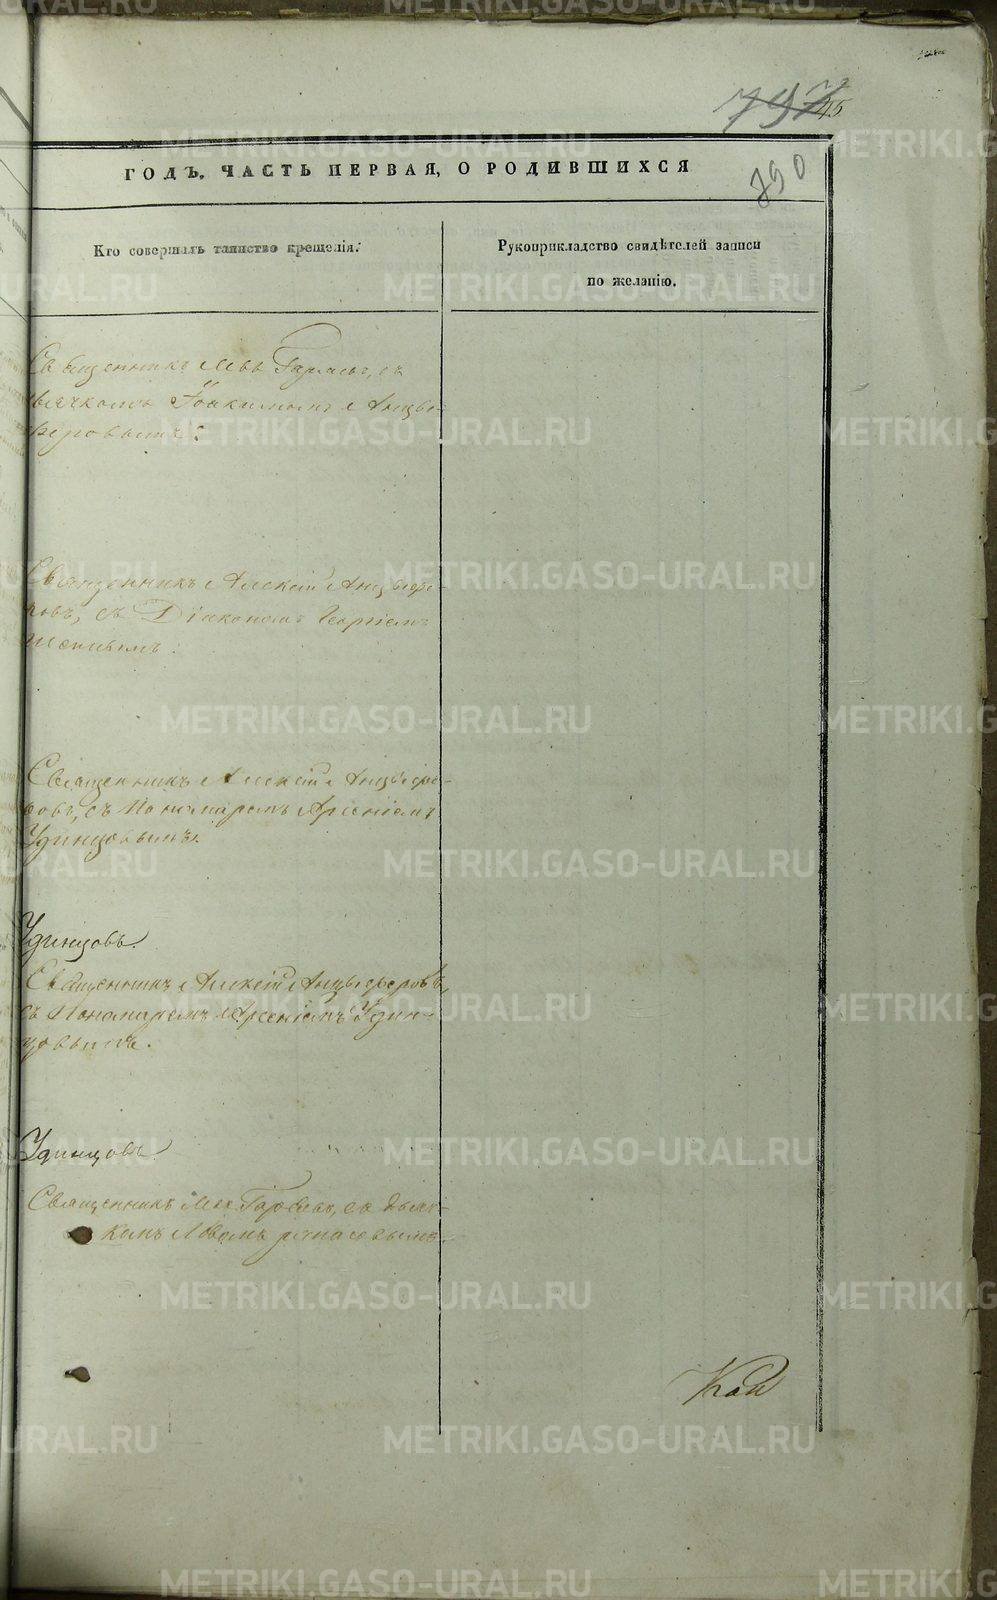 797
45
790
ГОДЪ, ЧАСТЬ ПЕРВАЯ, О РОДИВШИХСЯ
Кто совершалъ таинство крещенія.
Рукоприкладство свидѣтелей записи
по желанію.
Священникъ Левъ
дьячкомъ Іоакимомъ Анцы-
феровымъ.
Священникъ Алексій Анцыфе-
ровъ, съ Діакономъ Георгіемъ
Священникъ Алексій Анцыфе-
ровъ, съ Пономаремъ Арсеніемъ
Удинцовымъ.
Удинцовъ.
Священникъ Алексій Анцыферовъ,
съ Пономаремъ Арсеніемъ Удин-
цовымъ.
Удинцовъ.
Священникъ Левъ съ дьяч-
комъ Львомъ
METRIKI.GASO-URAL.RU